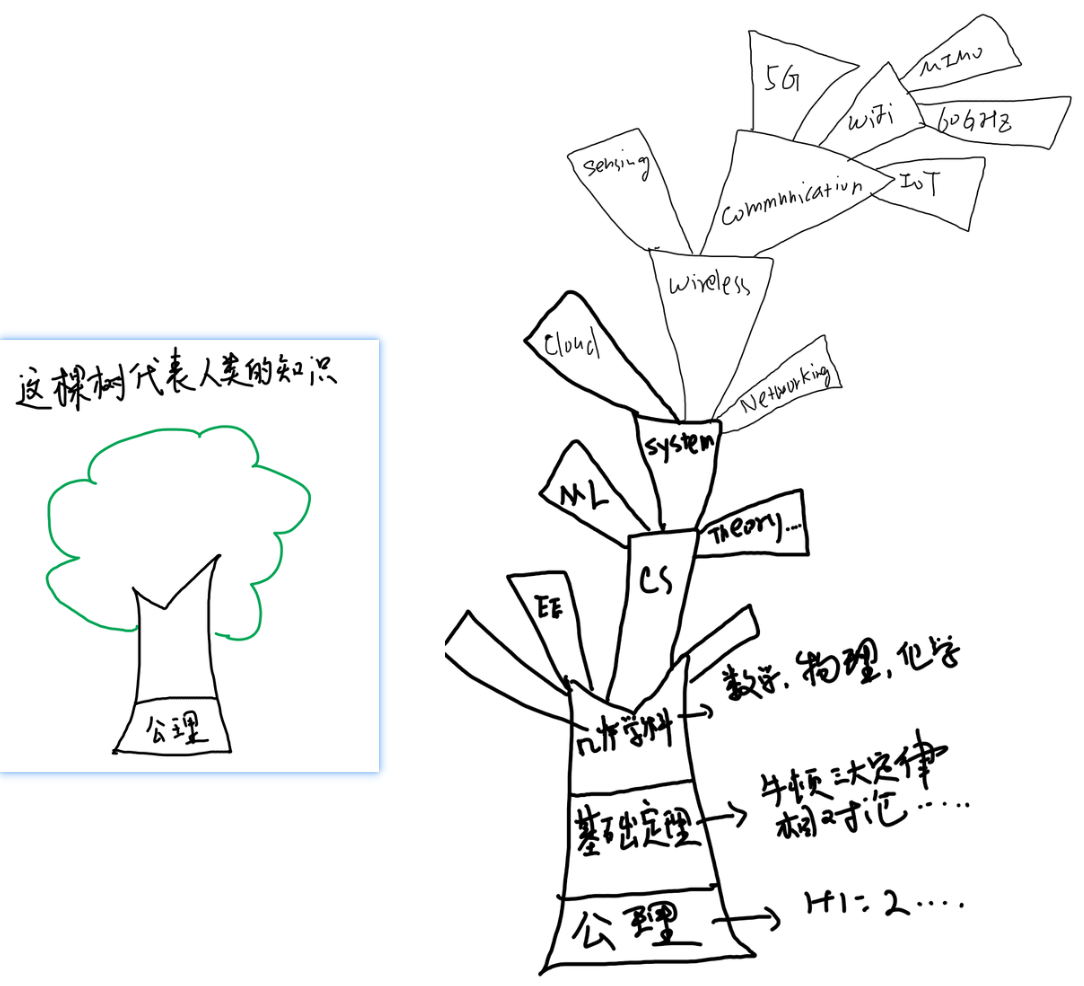 这棵树代表人类的知识
公理
5G
MIMO
WiFi
60GHZ
Sensing
Communication
IoT
Wireless
Cloud
Networking
System
ML
Theory....
CS
EE
数学,物理,化学
学科
牛顿三大定律
基础定理
相对论......
1+1=2....
公理